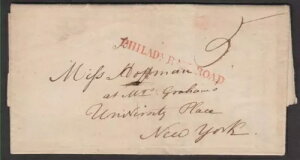 5
PHILADA RAIL ROAD
Miss Hoffman
at Mrs Grahams
University Place
New York.